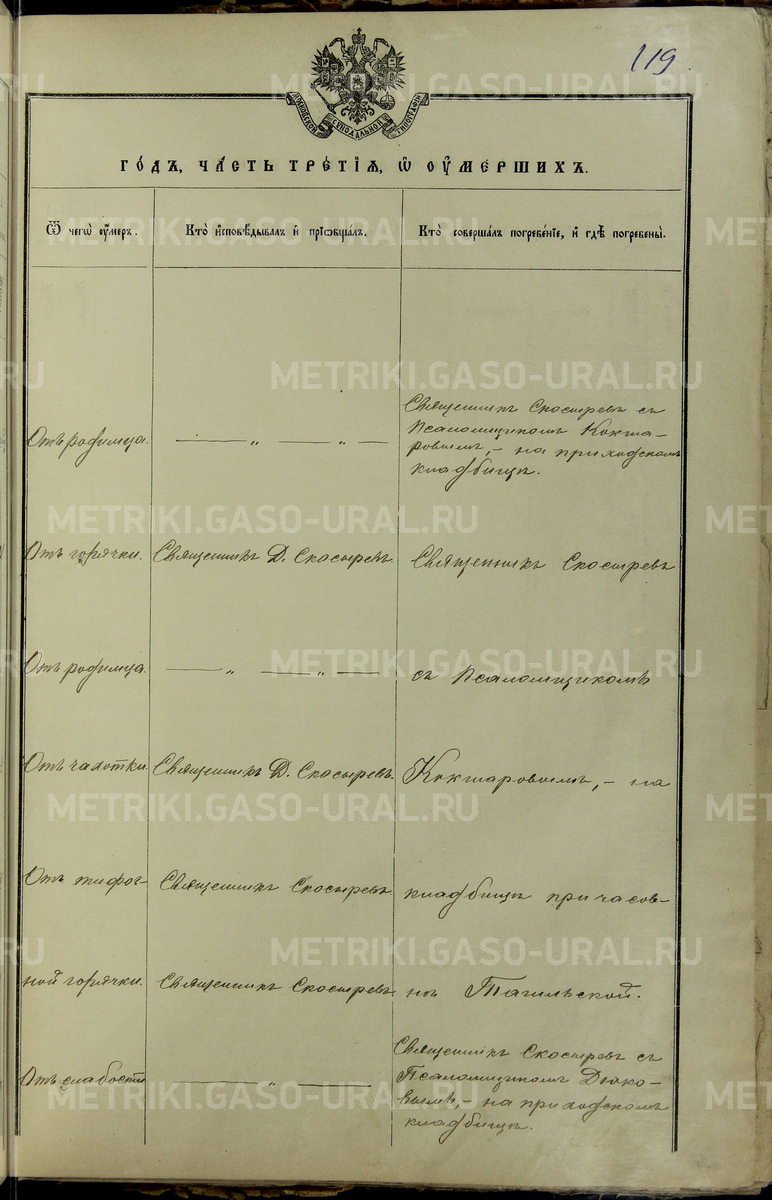 119
МОСКОВСКОЙ СѴНОДАЛЬНОЙ ТИПОГРАФІИ
ГОДЪ, ЧАСТЬ ТРЕТІЯ, Ѡ ОУМЕРШИХЪ.
Ѿ чегѡ оумеръ.
Кто исповѣдывалъ и пріѡбщалъ.
Кто совершалъ погребеніе, и гдѣ погребены.
Отъ родимца.
— „ — „ —
Священникъ Скосыревъ съ
Псаломщикомъ Кокша-
ровымъ, – на приходскомъ
кладбищѣ.
Отъ горячки.
Священникъ Д. Скосыревъ.
Священникъ Скосыревъ
Отъ родимца.
— „ — „ —
съ Псаломщикомъ
Отъ чахотки.
Священникъ Д. Скосыревъ.
Кокшаровымъ, – на
Отъ тифоз-
Священникъ Скосыревъ
кладбищѣ при часов-
ной горячки.
Священникъ Скосыревъ.
нѣ Тагильской.
Отъ слабости
— „ —
Священникъ Скосыревъ съ
Псаломщикомъ Дьяко-
вымъ, – на приходскомъ
кладбищѣ.
METRIKI.GASO-URAL.RU